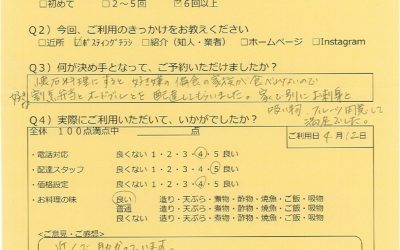 □ 初めて □ 2～5回 ☑ 6回以上
Q2）今回、ご利用のきっかけをお教えください
□ 近所 ☑ ポスティングチラシ □ 紹介（知人・業者） □ ホームページ □ Instagram
Q3）何が決め手となって、ご予約いただけましたか？
懐石料理にすると好き嫌の偏食の家族が食べれないので
割烹弁当とオードブルとを配達してもらいました。家で別にお刺身と
吸い物、フルーツ用意して
満足でした。
Q4）実際にご利用いただいて、いかがでしたか？
全体 100点満点中 点
ご利用日 4月12日
・電話対応 良くない 1・2・3・4・5 良い
・配達スタッフ 良くない 1・2・3・4・5 良い
・価格設定 良くない 1・2・3・4・5 良い
・お料理の味 良い 造り・天ぷら・煮物・酢物・焼魚・ご飯・吸物
普通 造り・天ぷら・煮物・酢物・焼魚・ご飯・吸物
良くない 造り・天ぷら・煮物・酢物・焼魚・ご飯・吸物
＜ご意見・ご感想＞
近くて助かっています。